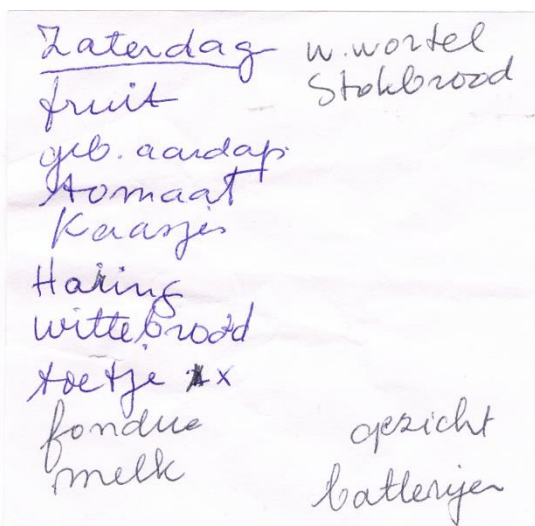 Zaterdag
fruit
geb. aardap.
tomaat
Kaasjes
Haring
wittebrood
toetje x
fondue
melk
w. wortel
Stokbrood
gezicht
batterijen